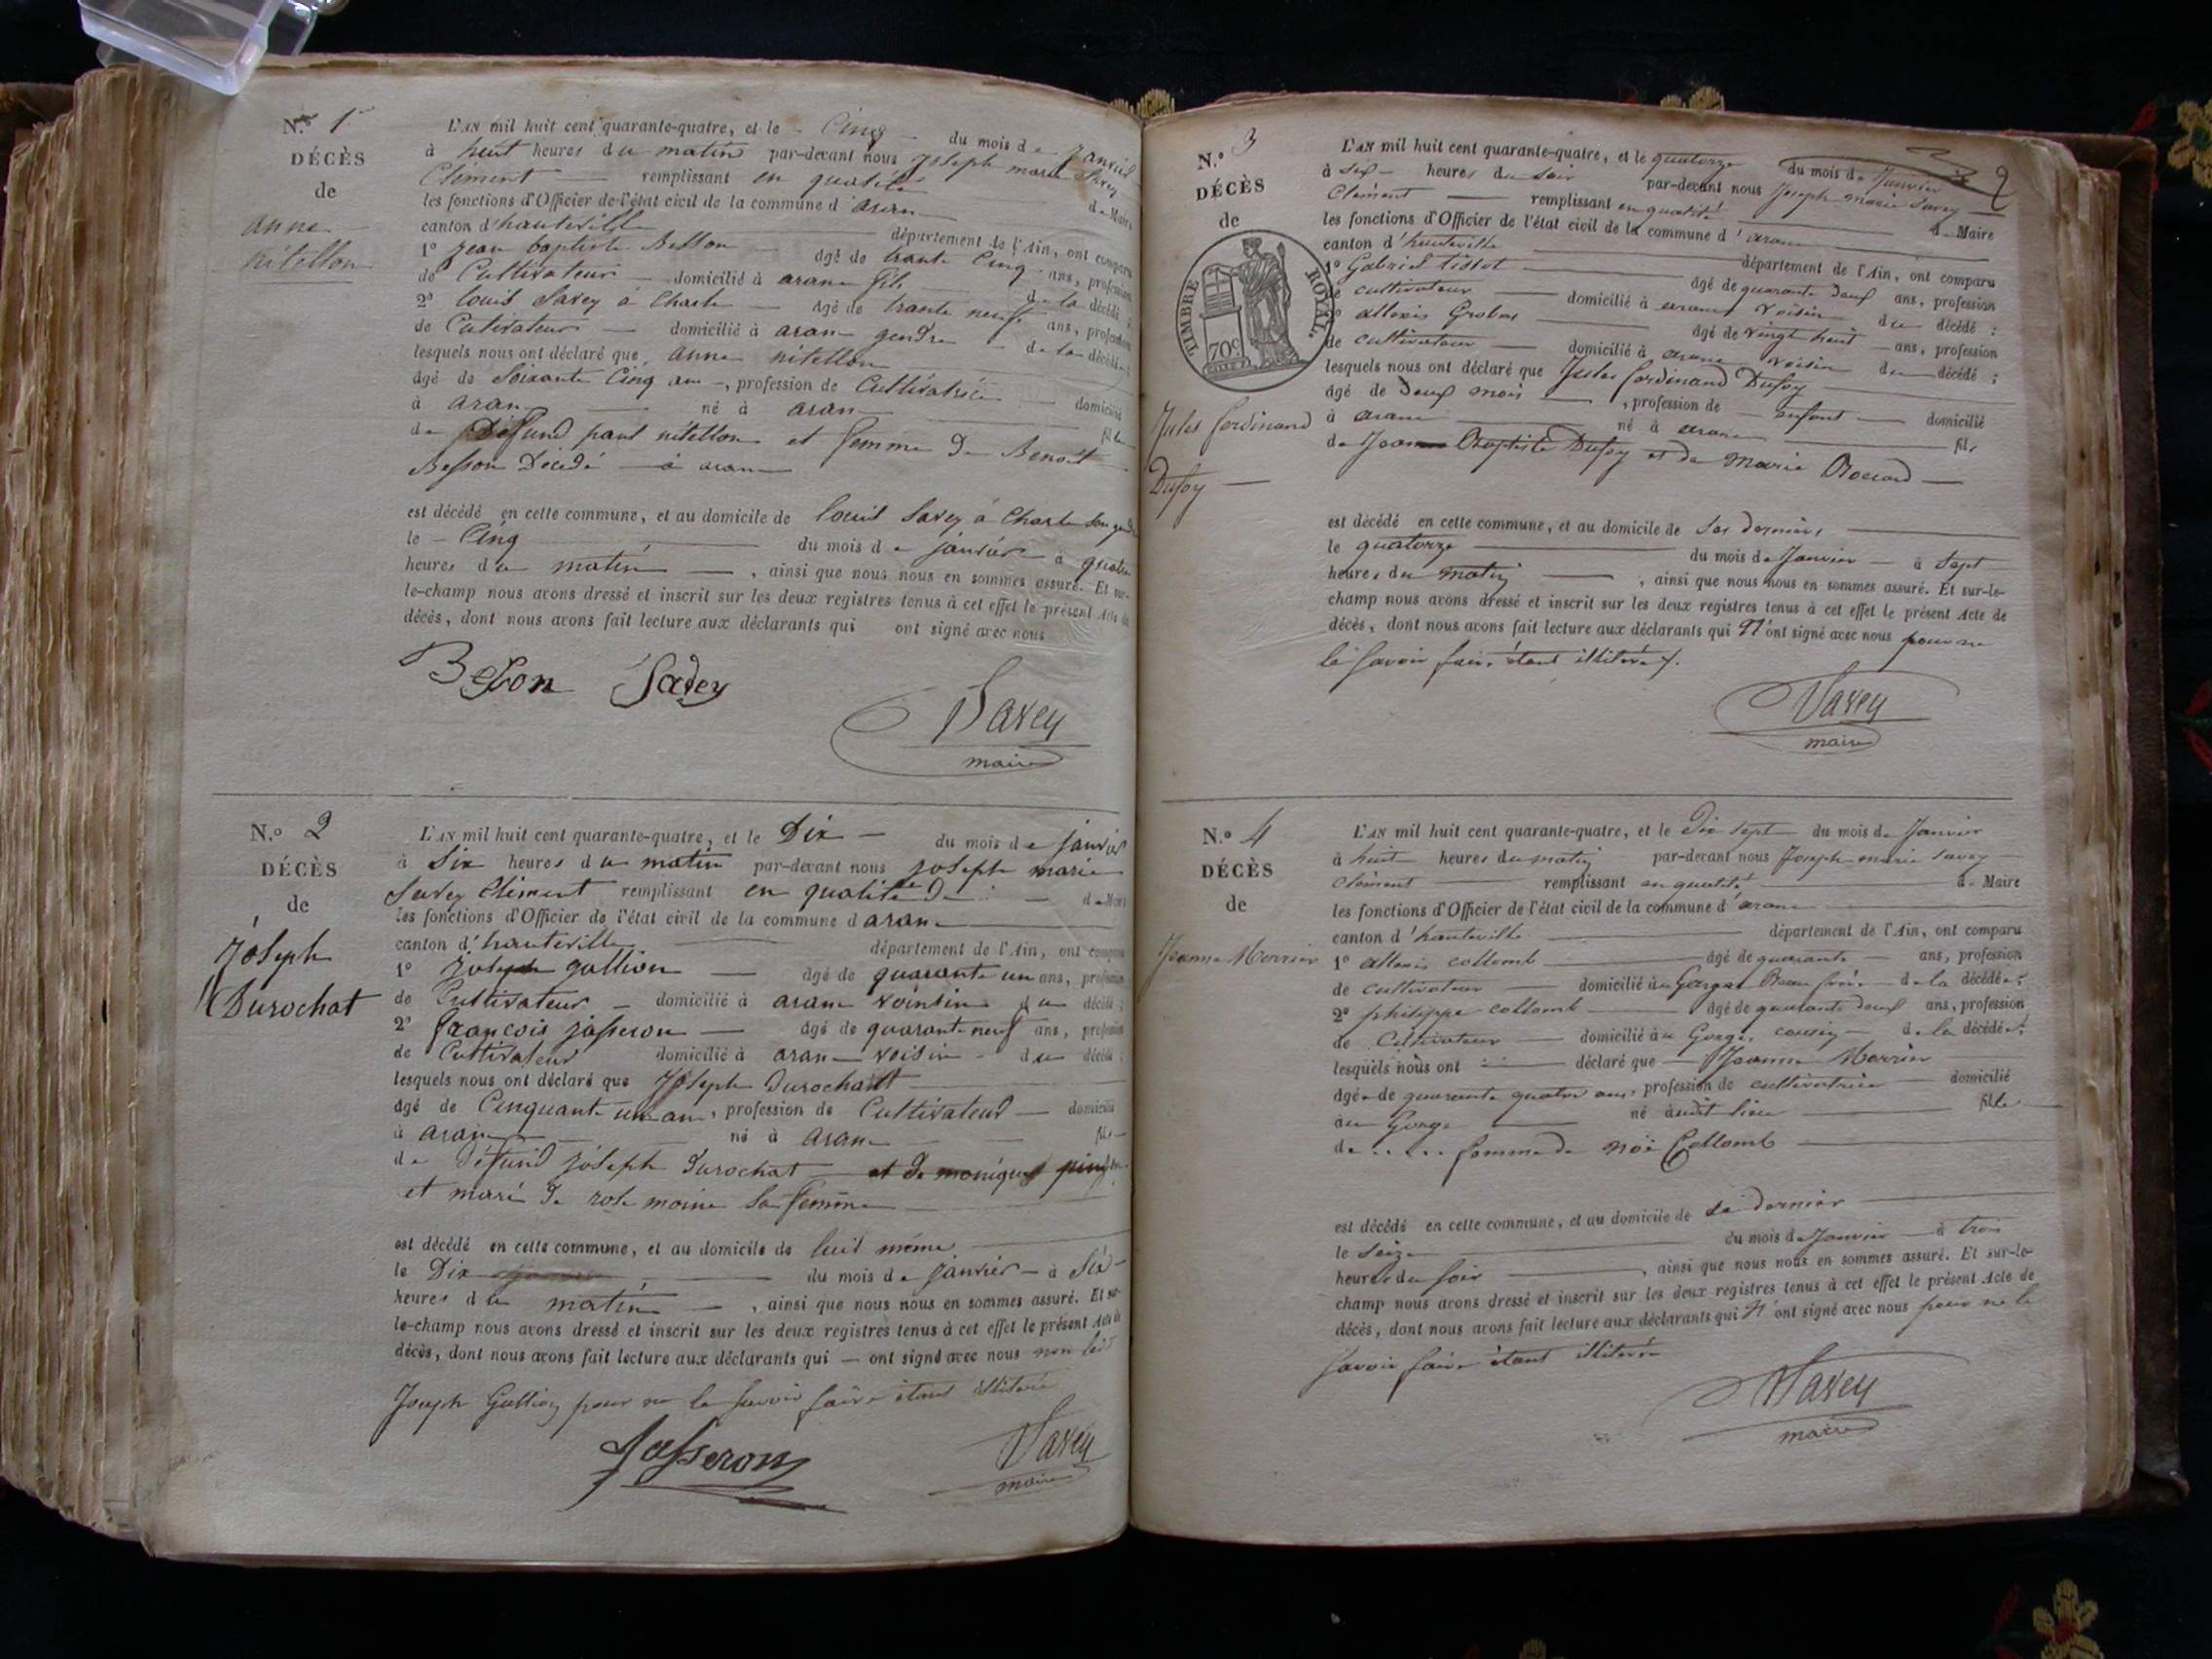 N.o 1
DÉCÈS
de
anne
nitellon
L'AN mil huit cent quarante-quatre, et le Cinq du mois de janvier
à heuit heures du matin par-devant nous joseph marie Savey
Clément remplissant en qualité de Maire
les fonctions d'Officier de l'état civil de la commune d'aran
canton d'hauteville département de l'Ain, ont comparu
1o jean baptiste Besson âgé de trante Cinq ans, profession
de Cultivateur domicilié à aran fils de la décédé ;
2o louis Savey à Charle âgé de trante neuf ans, profession
de Cutivateur domicilié à aran gendre de la décédé ;
lesquels nous ont déclaré que anne nitellon
âgé de Soixante Cinq ans, profession de Cultivatrice domicilié
à aran né à aran fille
de Défund paul nitellon et femme De Benoit
Besson Décédé à aran
est décédé en cette commune, et au domicile de louis Savey à Charle Son gendre
le Cinq du mois de janvier à quatre
heures du matin, ainsi que nous nous en sommes assuré. Et sur-
le-champ nous avons dressé et inscrit sur les deux registres tenus à cet effet le présent Acte de
décès, dont nous avons fait lecture aux déclarants qui ont signé avec nous
Besson Savey
Savey
maire
N.o 2
DÉCÈS
de
joseph
Durochat
L'AN mil huit cent quarante-quatre, et le Dix du mois de janvier
à Six heures du matin par-devant nous joseph marie
Savey Clément remplissant en qualité De de Maire
les fonctions d'Officier de l'état civil de la commune d aran
canton d'hauteville département de l'Ain, ont comparu
1o joseph gallion âgé de quarante un ans, profession
de Cultivateur domicilié à aran voinsin du décédé ;
2o françois josseron âgé de quarante neuf ans, profession
de Cultivateur domicilié à aran voisin du décédé ;
lesquels nous ont déclaré que joseph Durochat
âgé de Cinquante un an, profession de Cultivateur domicilié
à aran né à aran fils
de Défund joseph Durochat et De monique
et marié De rose moine Sa femme
est décédé en cette commune, et au domicile de luis même
le Dix du mois de janvier à Six
heures du matin, ainsi que nous nous en sommes assuré. Et sur-
le-champ nous avons dressé et inscrit sur les deux registres tenus à cet effet le présent Acte de
décès, dont nous avons fait lecture aux déclarants qui ont signé avec nous non led
Joseph Gallion pour ne le savoir faire étant illitéré
Josseron
Savey
maire
2
N.o 3
DÉCÈS
de
TIMBRE ROYAL
70c
Jules ferdinand
Dufoy
L'AN mil huit cent quarante-quatre, et le quatorze du mois de Janvier
à six heures du soir par-devant nous Joseph marie Savey
Clément remplissant en qualité de Maire
les fonctions d'Officier de l'état civil de la commune d'aran
canton d'hauteville département de l'Ain, ont comparu
1o Gabriel tissot âgé de quarante deux ans, profession
de cultivateur domicilié à aran voisin du décédé ;
2o allexis Grobas âgé de vingt huit ans, profession
de cultivateur domicilié à aran voisin du décédé ;
lesquels nous ont déclaré que Jules ferdinand Dufoy
âgé de Deux mois, profession de enfant domicilié
à aran né à aran fils
de Jean Baptiste Dufoy et de Marie
est décédé en cette commune, et au domicile de ses derniers
le quatorze du mois de Janvier à sept
heures du matin, ainsi que nous nous en sommes assuré. Et sur-le-
champ nous avons dressé et inscrit sur les deux registres tenus à cet effet le présent Acte de
décès, dont nous avons fait lecture aux déclarants qui n'ont signé avec nous pour ne
le savoir faire étant illitérés.
Savey
maire
N.o 4
DÉCÈS
de
Jeanne Merrier
L'AN mil huit cent quarante-quatre, et le Dix sept du mois de Janvier
à huit heures du matin par-devant nous Joseph marie Savey
Clément remplissant en qualité de Maire
les fonctions d'Officier de l'état civil de la commune d'aran
canton d'hauteville département de l'Ain, ont comparu
1o allexis collomb âgé de quarante ans, profession
de cultivateur domicilié au Gorges Beau frère de la décédée ;
2o philippe collomb âgé de quarante deux ans, profession
de Cultivateur domicilié au Gorges cousin de la décédée ;
lesquels nous ont déclaré que Jeanne Merrier
âgée de quarante quatre ans, profession de cultivatrice domicilié
au Gorge né audit lieu fille
de ..... femme de noé Collomb
est décédé en cette commune, et au domicile de ce dernier
le seize du mois de Janvier à trois
heures du soir, ainsi que nous nous en sommes assuré. Et sur-le-
champ nous avons dressé et inscrit sur les deux registres tenus à cet effet le présent Acte de
décès, dont nous avons fait lecture aux déclarants qui n'ont signé avec nous pour ne le
savoir faire étant illitéré
Savey
maire